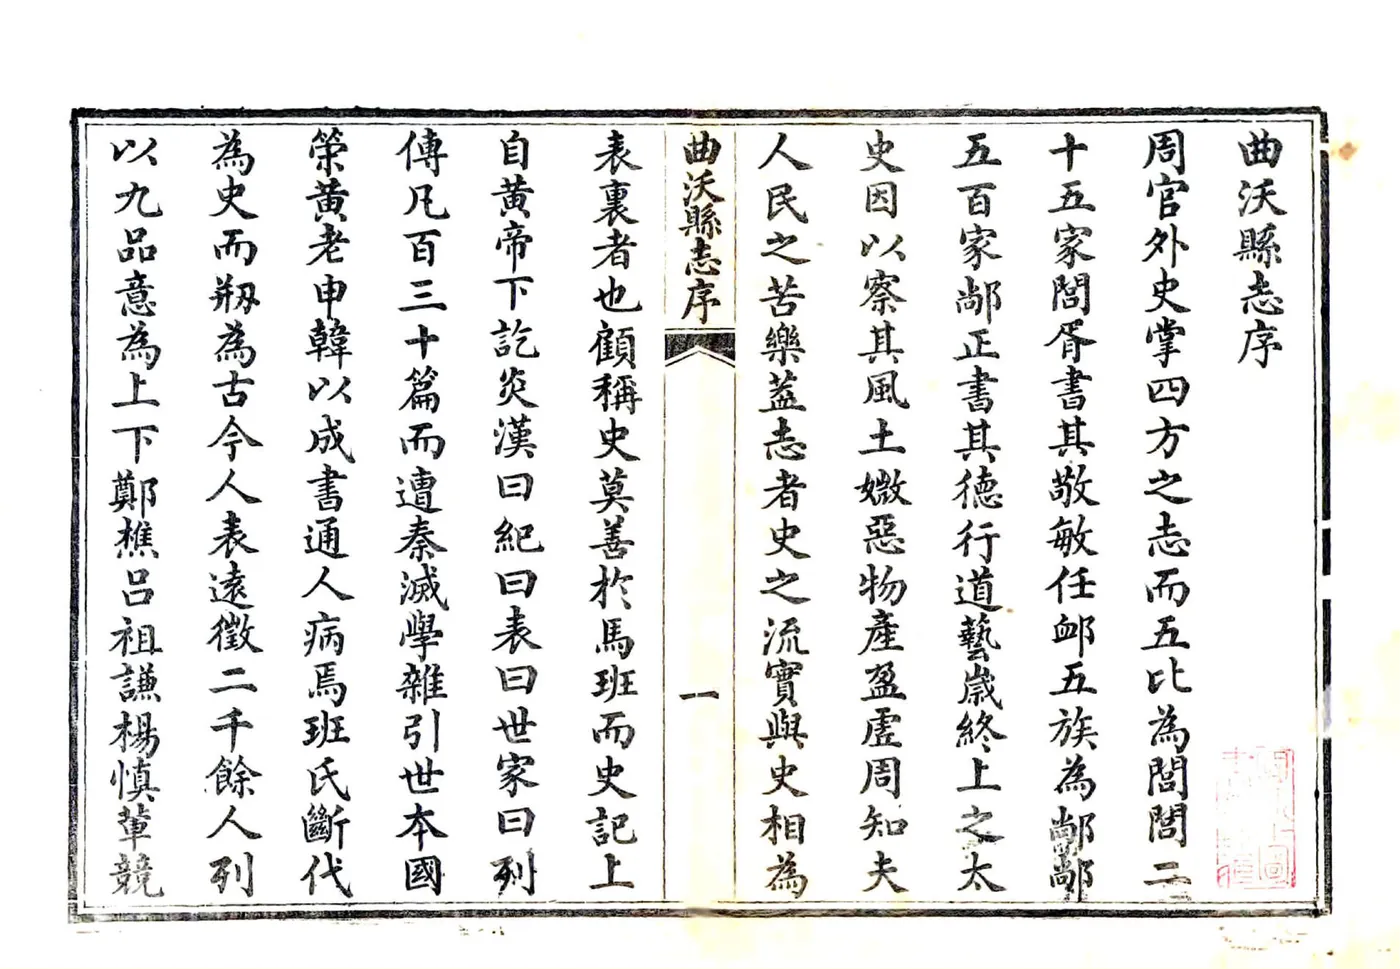 曲沃縣志序
周官外史掌四方之志而五比為閭閭二
十五家閭胥書其敬敏任䘏五族為鄙鄙
五百家鄙正書其德行道藝歲終上之太
史因以察其風土媺惡物產盈虛周知夫
人民之苦樂蓋志者史之流實與史相為
曲沃縣志序
一
表裏者也顧稱史莫善於馬班而史記上
自黃帝下訖炎漢曰紀曰表曰世家曰列
傳凡百三十篇而遭秦滅學雜引世本國
策黃老申韓以成書通人病焉班氏斷代
為史而剏為古今人表遠徵二千餘人列
以九品意為上下鄭樵呂祖謙楊慎輩競